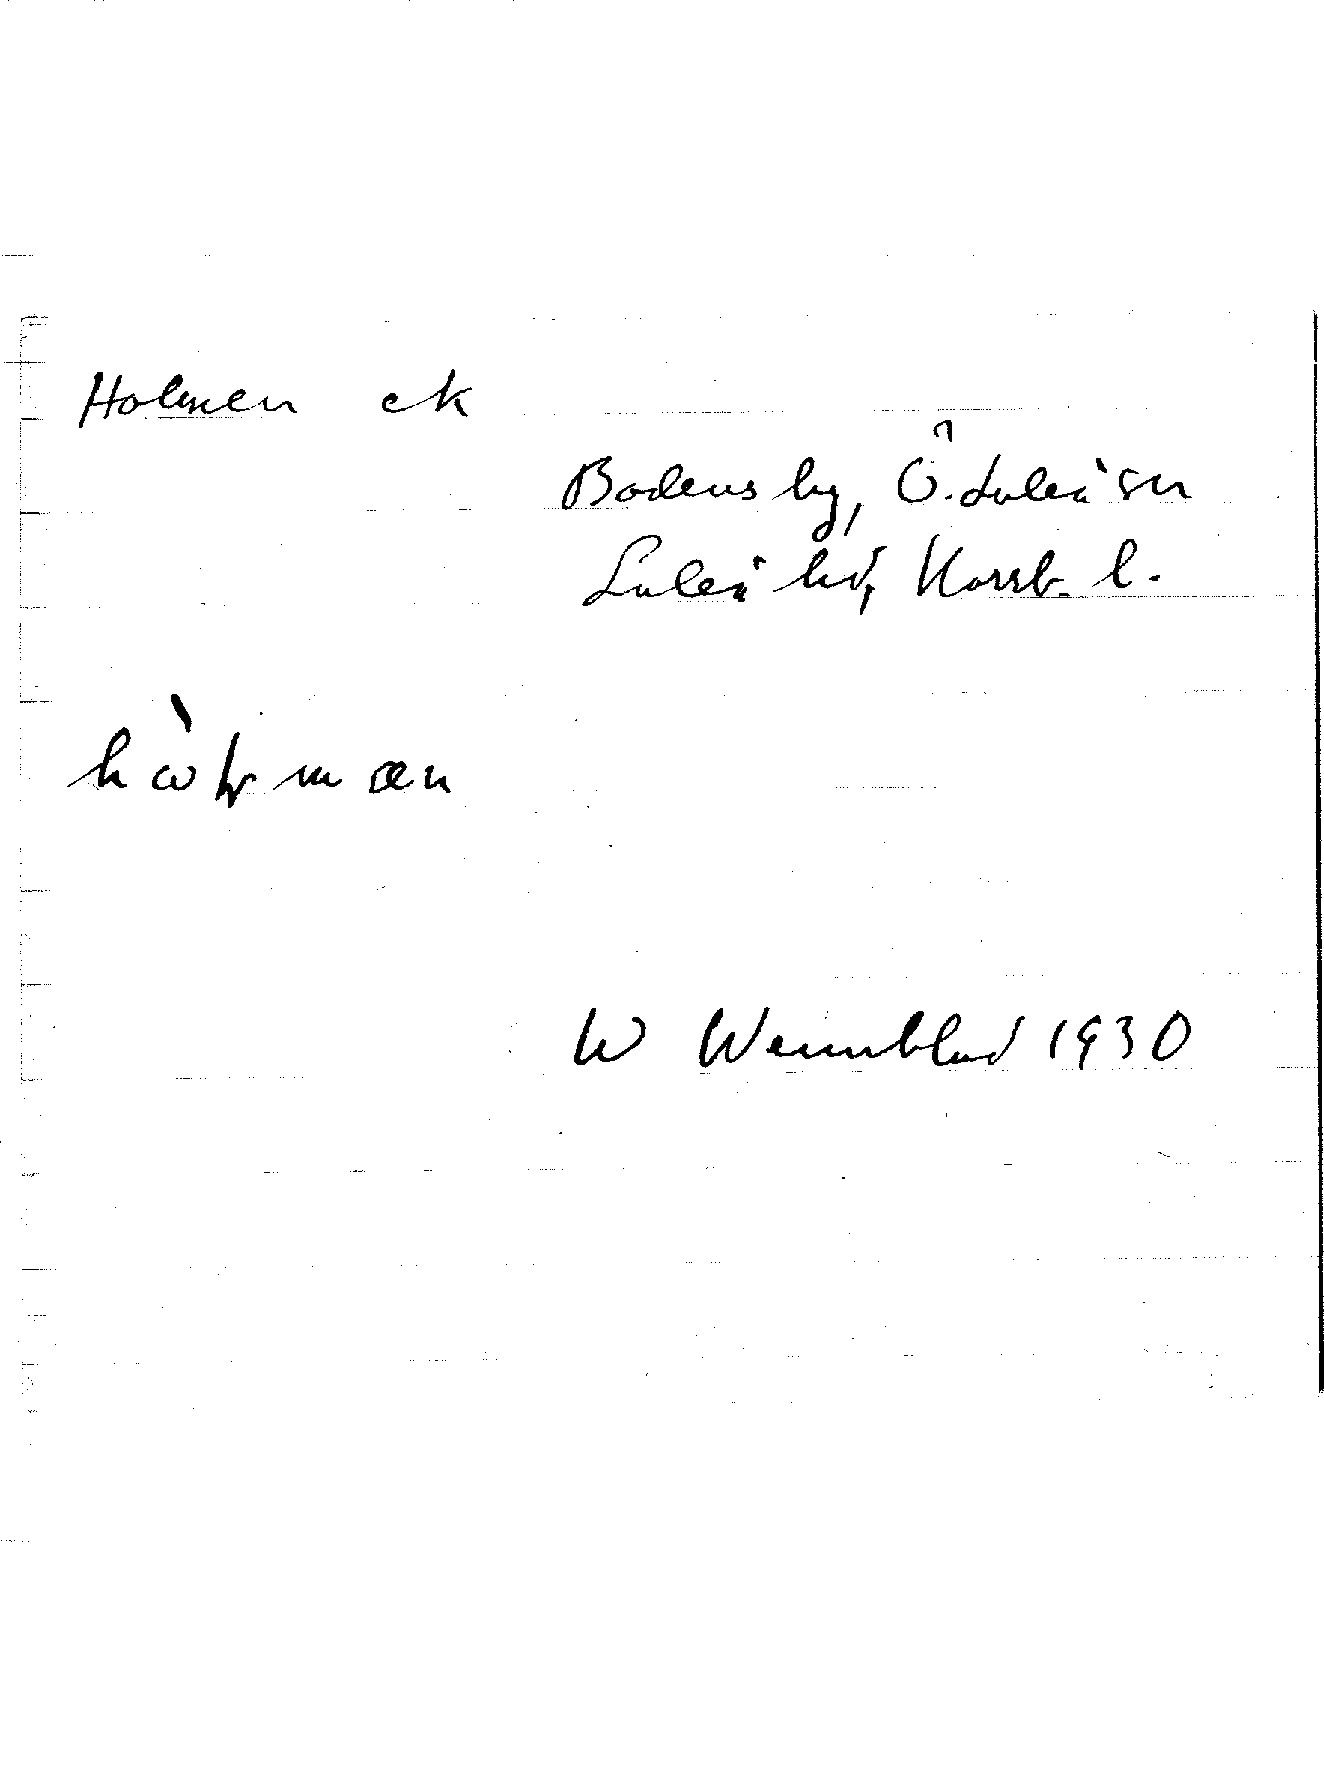 Holmen ek
Bodens by, Ö. Luleå sn
Luleå hd, Norrb. l.
W Wennblad 1930